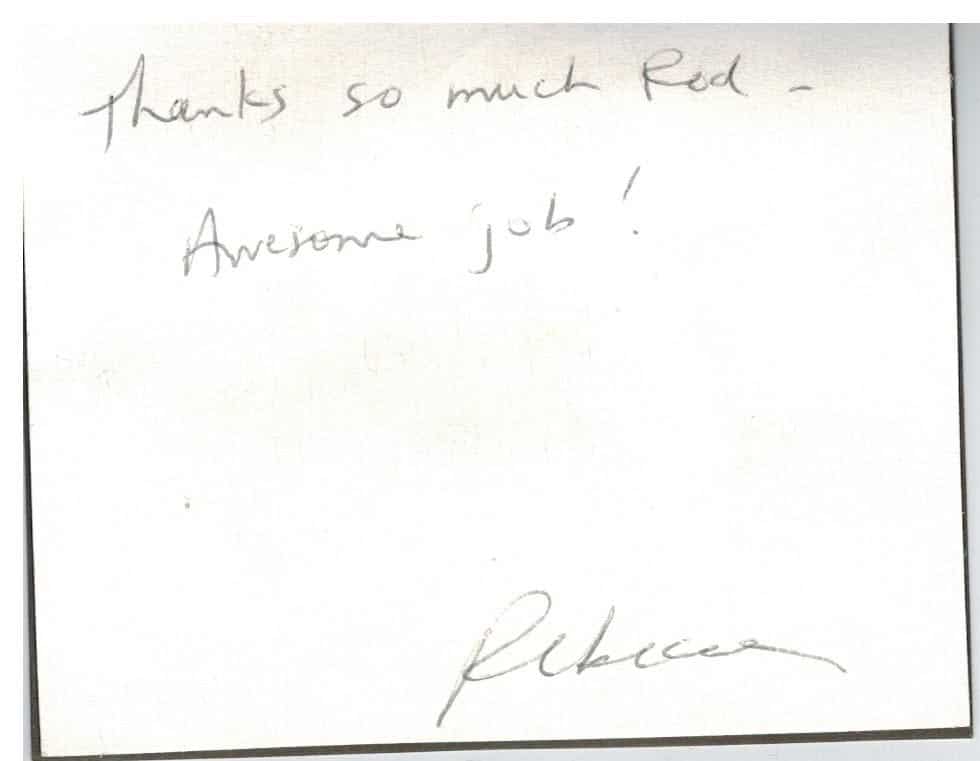 Thanks so much Rod -
Awesome job!
Rebecca